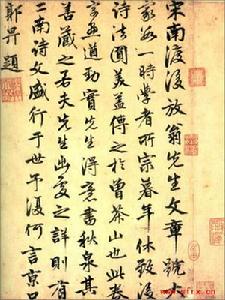 宋南渡後放翁先生文章號
家為一時學者所宗暮年休致後
詩法圓美蓋傳之於曾茶山也此卷
字畫遒勁實先生得意書秋泉其
善藏之若夫先生出處之詳則有
二南詩文盛行于世予復何言京口
郭畀題